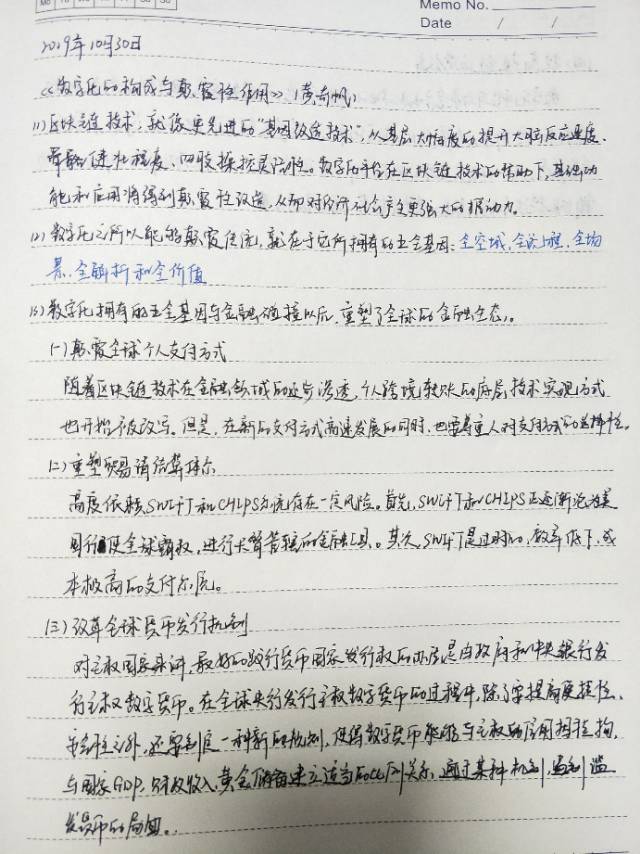 Memo No.
Date / /
2019年10月30日
《数字化的构成与颠覆性作用》（黄奇帆）
(1)区块链技术，就像更先进的"基因改造技术"，从基层大幅度的提升大脑反应速度、
骨骼健壮程度、四肢操控灵活性。数字化平台在区块链技术的帮助下，基础功
能和应用将得到颠覆性改造，从而对经济社会产生更强大的推动力。
(2)数字化之所以能够颠覆传统，就在于它所拥有的五全基因：全空域、全流程、全场
景、全解析和全价值
(3)数字化拥有的五全基因与金融碰撞以后，重塑了全球的金融生态。
(一)颠覆全球个人支付方式
随着区块链技术在金融领域的逐步渗透，个人跨境转账的底层技术实现方式
也开始被改写。但是，在新的支付方式高速发展的同时，也需尊重人对支付方式的选择性。
(二)重塑贸易清结算体系
高度依赖SWIFT和CHIPS系统存在一定风险。首先，SWIFT和CHIPS正逐渐沦为美
国行使全球霸权，进行长臂管辖的金融工具。其次，SWIFT是过时的、效率低下、成
本极高的支付系统。
(三)改革全球货币发行机制
对主权国家来讲，最好的践行货币国家发行权的办法是由政府和中央银行发
行主权数字货币。在全球央行发行主权数字货币的过程中，除了要提高便捷性、
安全性之外，还要制定一种新的规则，使得数字货币能够与主权的信用相挂钩，
与国家GDP、财政收入、黄金储备建立适当的比例关系，通过某种机制，遏制滥
发货币的局面。